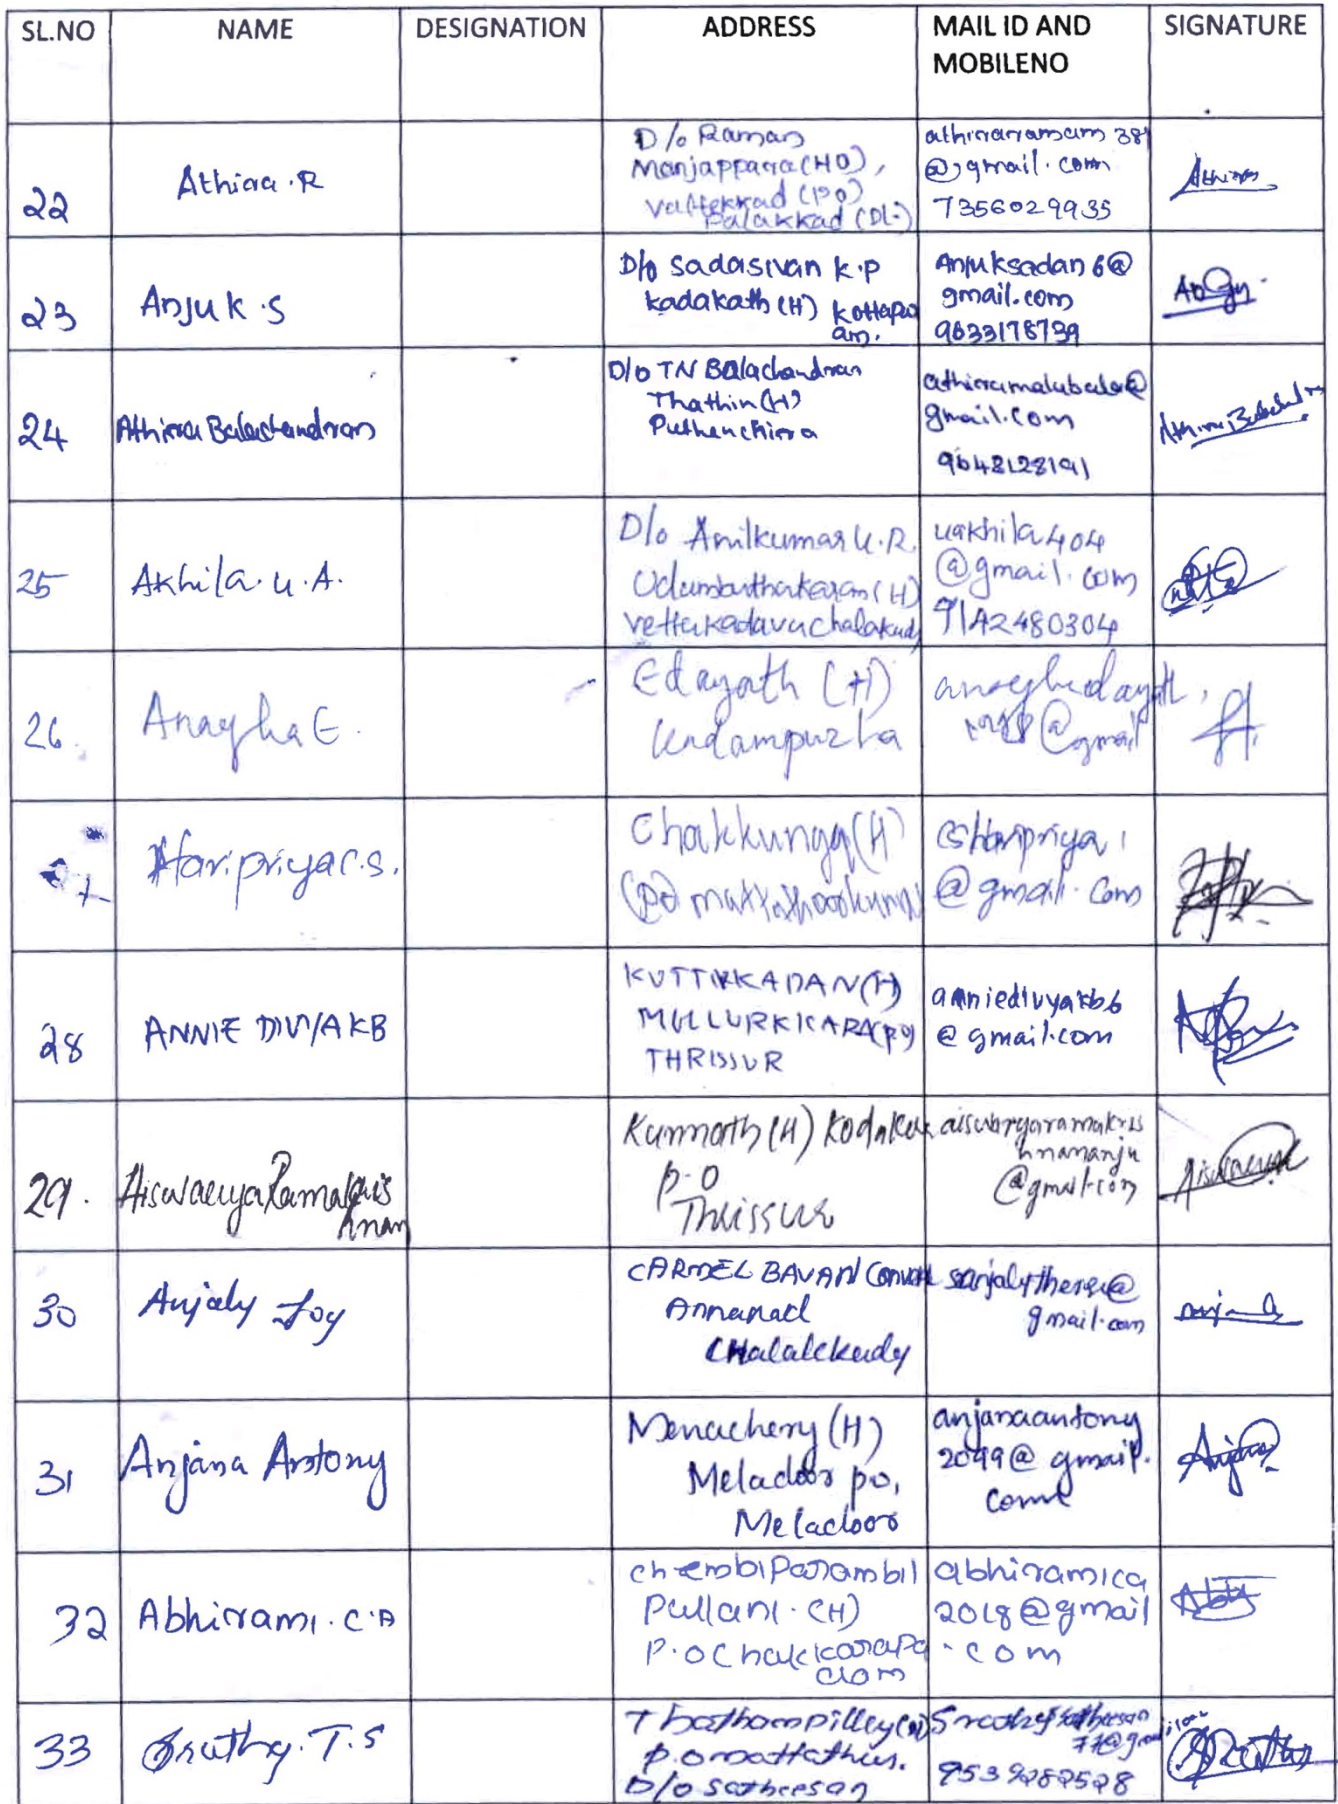 SL.NO NAME DESIGNATION ADDRESS MAIL ID AND MOBILENO SIGNATURE
22 Athira.R
D/o Raman
Manjappara(HO),
Vattekkad (PO)
Palakkad (Dt)
athiraramam 381
@gmail.com
7356029935
Athira
23 Anju K.S
D/o Sadasivan K.P
Kadakath (H) Kottapur
am.
Anjuksadan6@
gmail.com
9633178739
24 Athira Balachandran
D/o TN Balachandran
Thathin (H)
Puthenchira
athiramalubala@
gmail.com
9648128191
Athira Balachandran
25 Akhila.U.A.
D/o Anilkumar U.R.
Udumbuthakaram (H)
Vettukadavu chalakudy
uakhila404
@gmail.com
9142480304
26 Anagha E.
Edayath (H)
Kadampuzha
@gmail
Haripriya C.S.
Chakkungal (H)
(PO)
csharipriya1
@gmail.com
28 ANNIE DIVYA KB
KUTTIKKADAN(H)
MULLURKKARA(PO)
THRISSUR
anniedivyakb6
@gmail.com
29. Aiswarya Ramakris
hnan
Kunnath (H) Kodakara
P.O
Thrissur
aiswaryaramakris
hnanmanju
@gmail.com
Aiswarya
30 Anjaly Joy
CARMEL BAVAN Convent
Annanad
CHalakkudy
sanjalytherese@
gmail.com
31 Anjana Antony
Menachery (H)
Meladoor po,
Meladoor
anjanaantony
2099@gmail.
com
Anjana
32 Abhirami.C.A
Chembiparambil
Pullani.(H)
P.O Chakkarapa
dam
abhiramica
2018@gmail
.com
33 Sruthy.T.S
Thathampilley(H)
P.O mattathur.
D/o Satheesan
Sruthysatheesan
77@gmail.com
9539282528